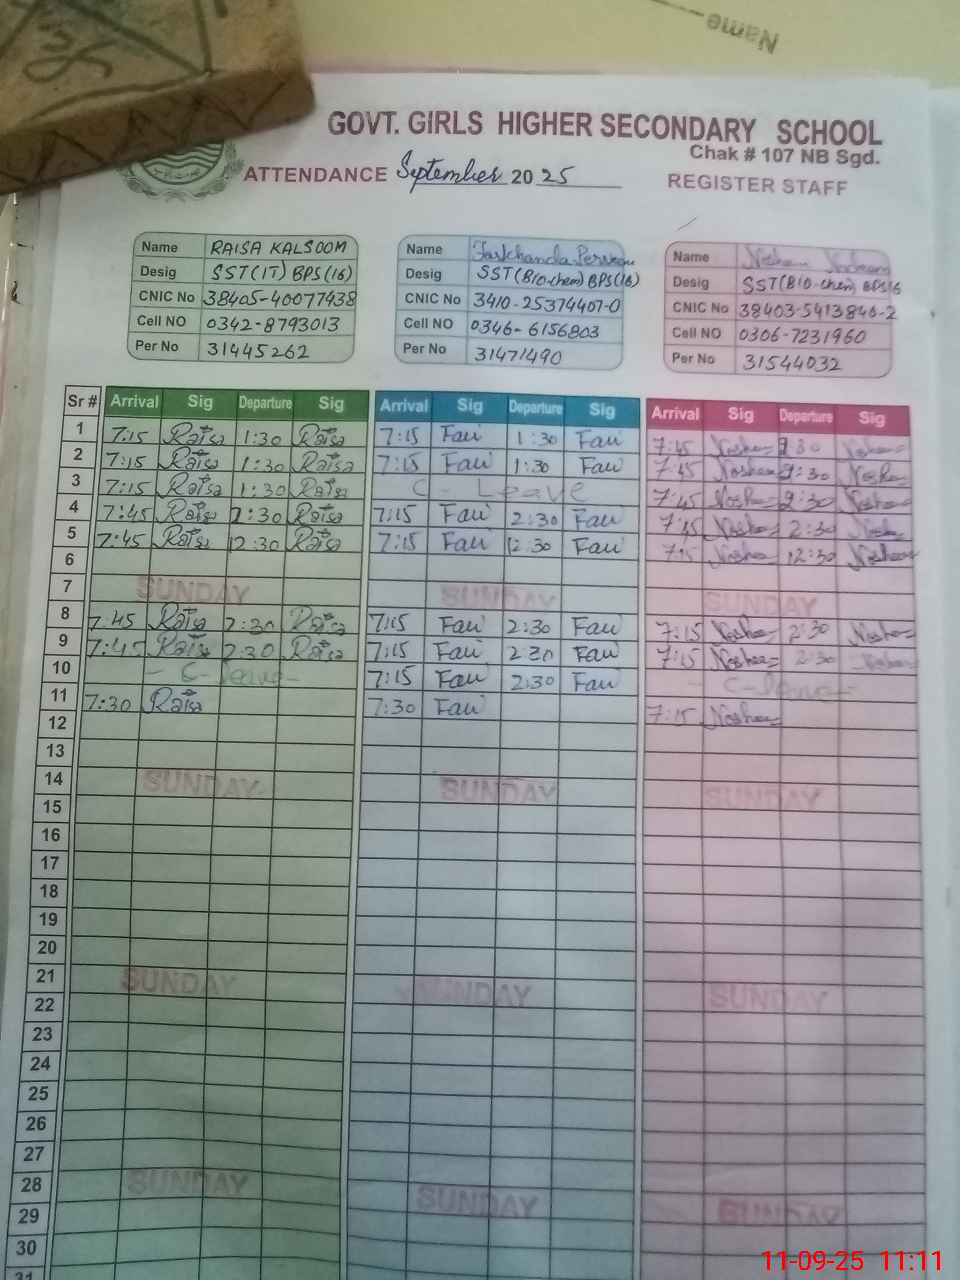 Name
GOVT. GIRLS HIGHER SECONDARY SCHOOL
Chak # 107 NB Sgd.
ATTENDANCE September 2025 REGISTER STAFF
Name RAISA KALSOOM
Desig SST(IT) BPS(16)
CNIC No 38405-40077438
Cell NO 0342-8793013
Per No 31445262
Name Farkhanda Perveen
Desig SST(Bio-chem) BPS(16)
CNIC No 3410-25374407-0
Cell NO 0346-6156803
Per No 31471490
Name
Desig SST(Bio-chem) BPS(16
CNIC No 38403-5413846-2
Cell NO 0306-7231960
Per No 31544032
Sr # Arrival Sig Departure Sig Arrival Sig Departure Sig Arrival Sig Departure Sig
1 7:15 Raisa 1:30 Raisa 7:15 Fari 1:30 Fari
2 7:15 Raisa 1:30 Raisa 7:15 Fari 1:30 Fari
3 7:15 Raisa 1:30 Raisa C - Leave
4 7:45 Raisa 2:30 Raisa 7:15 Fari 2:30 Fari 2:30
5 7:45 Raisa 12:30 Raisa 7:15 Fari 12:30 Fari 7:15 12:30
6
7 SUNDAY SUNDAY SUNDAY
8 7:45 Raisa 2:30 Raisa 7:15 Fari 2:30 Fari 7:15 2:30
9 7:45 Raisa 2:30 Raisa 7:15 Fari 2:30 Fari 7:15 2:30
10 - C-leave- 7:15 Fari 2:30 Fari - C-leave-
11 7:30 Raisa 7:30 Fari 7:15
12
13
14 SUNDAY SUNDAY SUNDAY
15
16
17
18
19
20
21 SUNDAY SUNDAY SUNDAY
22
23
24
25
26
27
28 SUNDAY SUNDAY SUNDAY
29
30
31
11-09-25 11:11